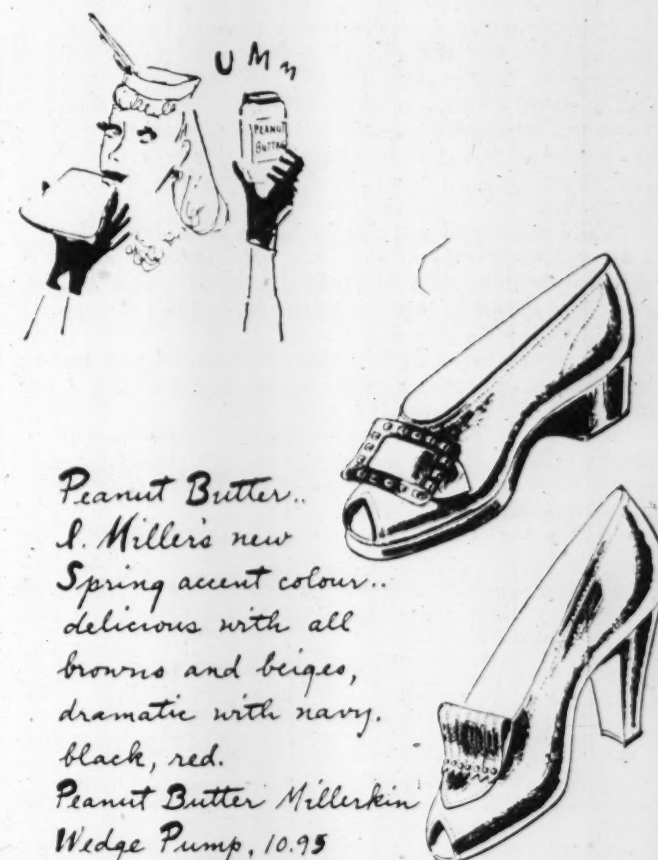 UMm
PEANUT
BUTTER
Peanut Butter..
I. Miller's new
Spring accent colour..
delicious with all
browns and beiges,
dramatic with navy.
black, red.
Peanut Butter Millerkin
Wedge Pump, 10.95